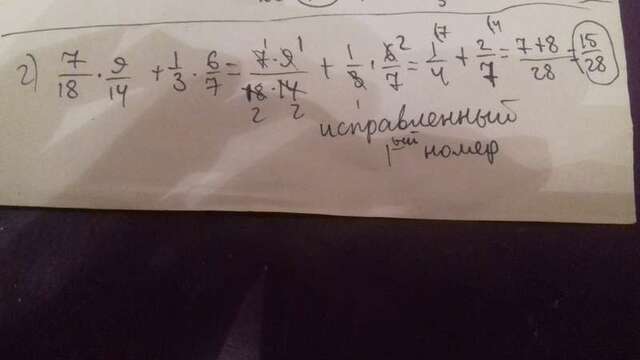 г) 7/18 · 9/14 + 1/3 · 6/7 = 7·9/18·14 + 1/3 · 6/7 = 1/4 + 2/7 = 7+8/28 = 15/28
исправленный
1ый номер